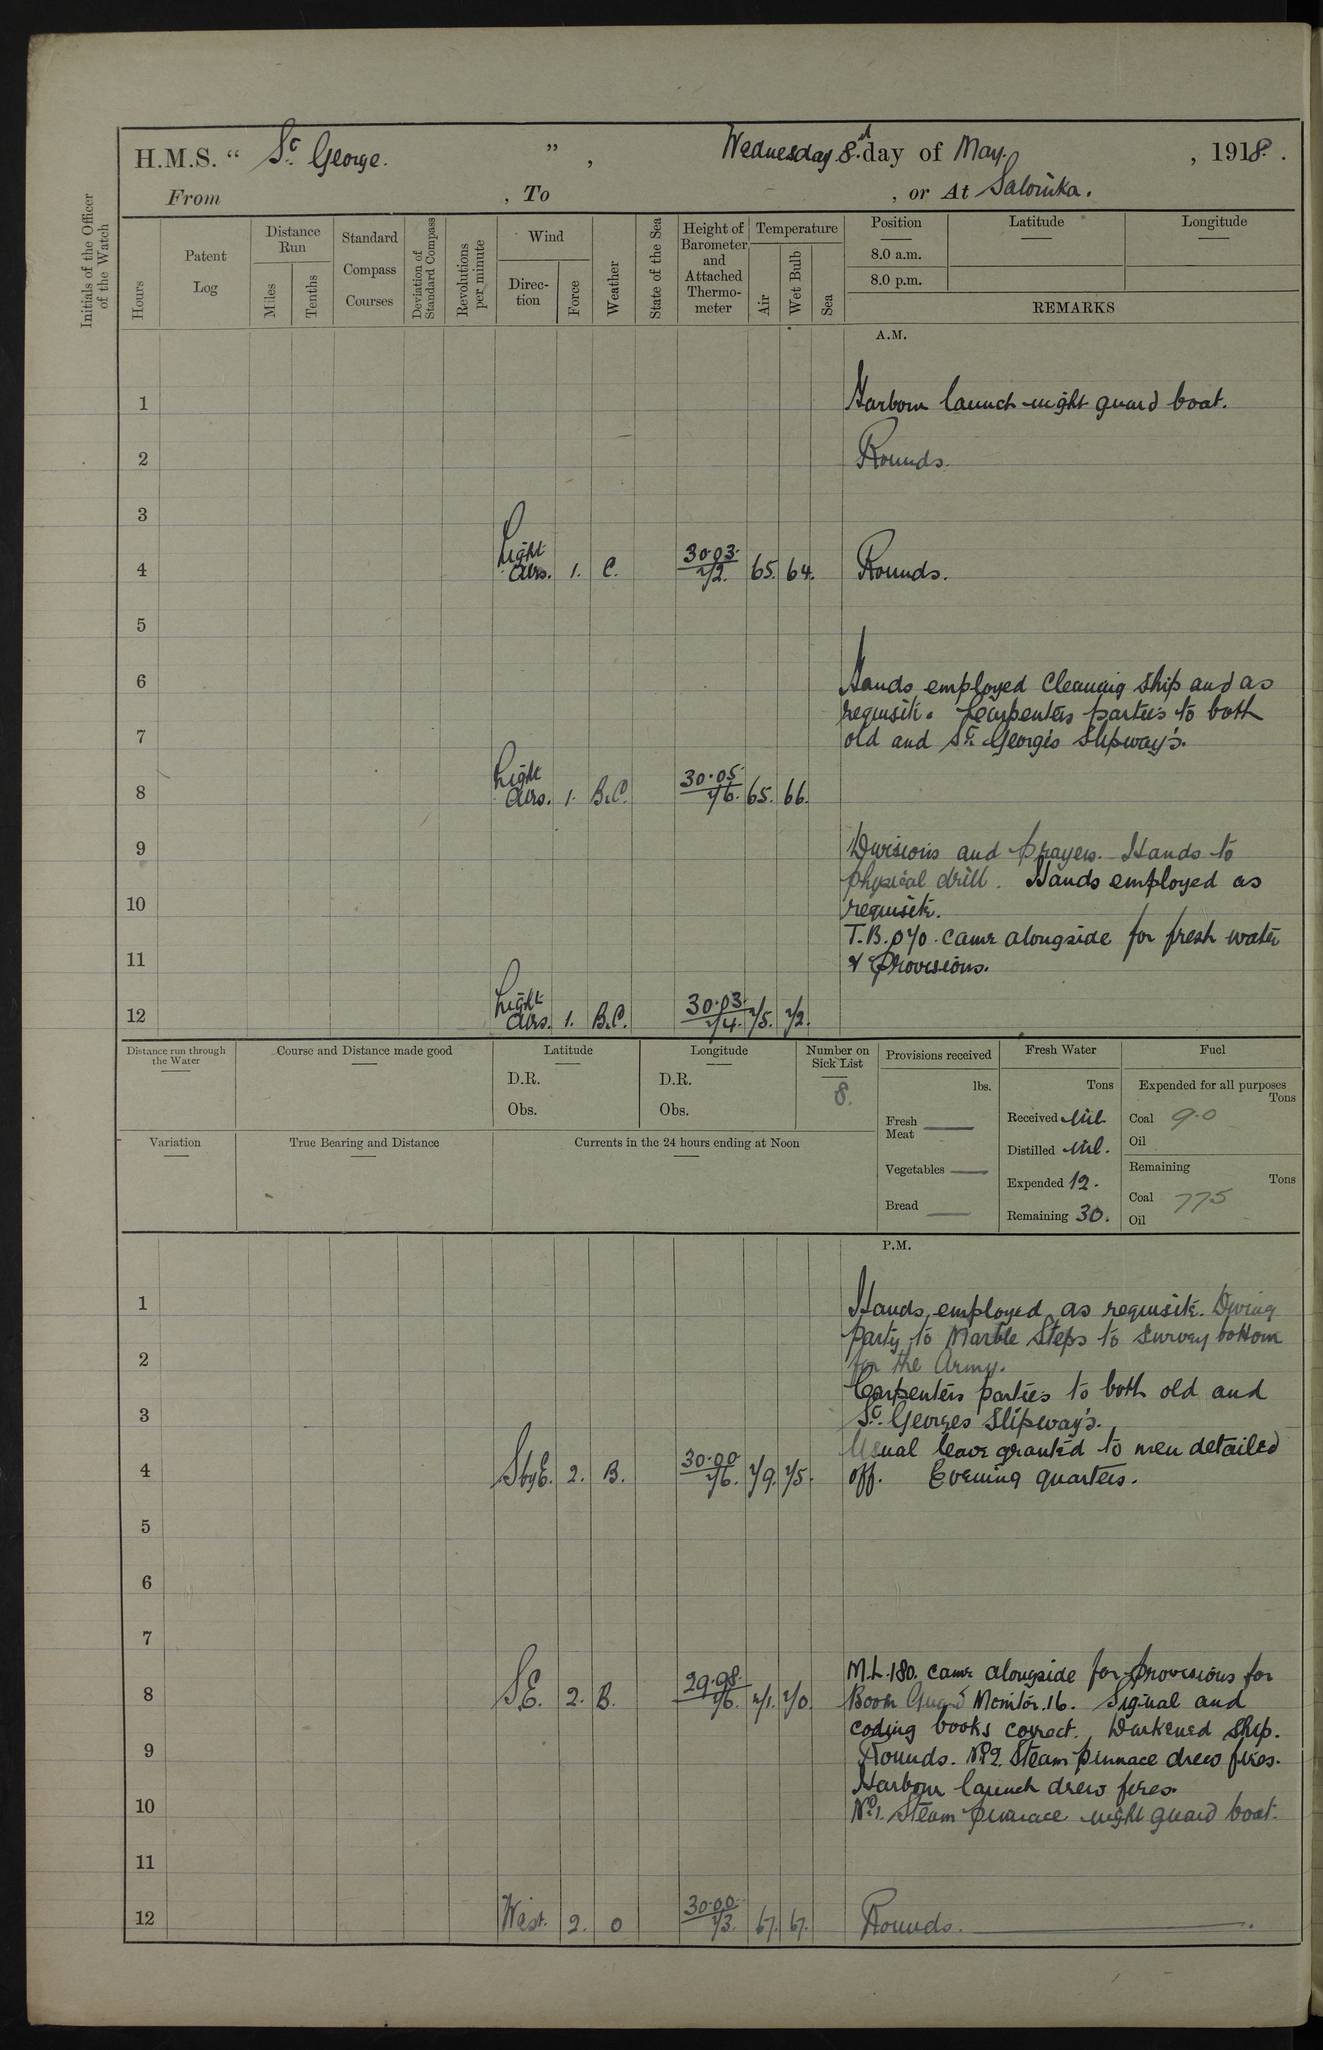 H.M.S. “ St. George. ” , Wednesday 8.d day of May. , 1918. .
From , To , or At Salonika.
Initials of the Officer of the Watch
Hours
Patent Log
Distance Run
Miles
Tenths
Standard Compass Courses
Deviation of Standard Compass
Revolutions per minute
Wind
Direction
Force
Weather
State of the Sea
Height of Barometer and Attached Thermometer
Temperature
Air
Wet Bulb
Sea
Position Latitude Longitude
8.0 a.m.
8.0 p.m.
REMARKS
A.M.
1 Harbour launch night guard boat.
2 Rounds.
3
4 Light Airs. 1. C. 30.03. 72. 65. 64. Rounds.
5
6 Hands employed Cleaning Ship and as
requisite. Carpenters parties to both
7 old and St. George's Slipway's.
8 Light Airs. 1. B.C. 30.05. 76. 65. 66.
9 Divisions and Prayers. Hands to
physical drill. Hands employed as
10 requisite.
T.B. 070. came alongside for fresh water
11 & Provisions.
12 Light Airs. 1. B.C. 30.03. 74. 75. 72.
Distance run through the Water
Course and Distance made good
Latitude
D.R.
Obs.
Longitude
D.R.
Obs.
Number on Sick List
8.
Provisions received
lbs.
Fresh Meat
Vegetables
Bread
Fresh Water
Tons
Received Nil
Distilled Nil.
Expended 12.
Remaining 30.
Fuel
Expended for all purposes
Tons
Coal 9.0
Oil
Remaining
Tons
Coal 775
Oil
Variation
True Bearing and Distance
Currents in the 24 hours ending at Noon
P.M.
1 Hands employed as requisite. Diving
party to Marble Steps to survey bottom
2 for the Army.
Carpenters parties to both old and
3 St. Georges Slipway's.
Usual leave granted to men detailed
4 SbyE. 2. B. 30.00 76. 79. 75. off. Evening quarters.
5
6
7
M.L. 180. came alongside for provisions for
8 SE. 2. B. 29.98. 76. 71. 70. Boom Guard Monitor. 16. Signal and
coding books correct. Darkened Ship.
9 Rounds. No. 2. Steam pinnace drew fires.
Harbour launch drew fires.
10 No. 1. Steam pinnace night guard boat.
11
12 West. 2. O 30.00. 73. 67. 67. Rounds.